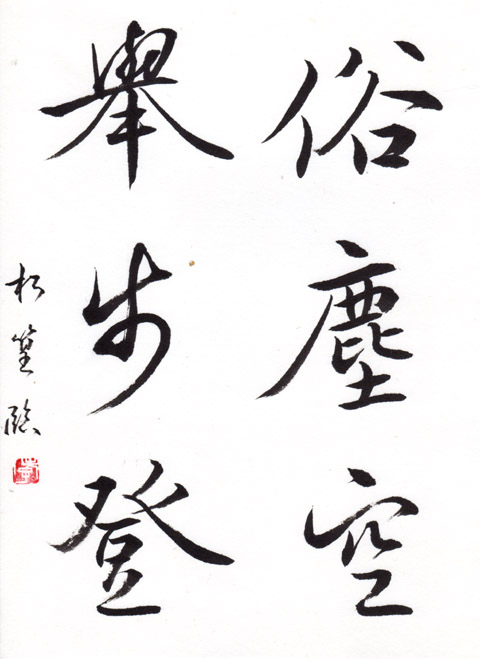 俗塵空
舉步登
松臨